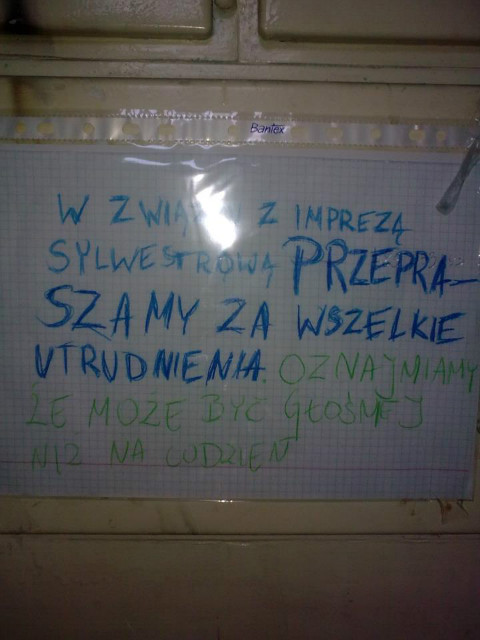 Bantex
W Z IMPREZĄ
SYLWESTROWĄ PRZEPRA-
SZAMY ZA WSZELKIE
UTRUDNIENIA. OZNAJMIAMY
ŻE MOŻE BYĆ GŁOŚNIEJ
NIŻ NA CODZIEŃ